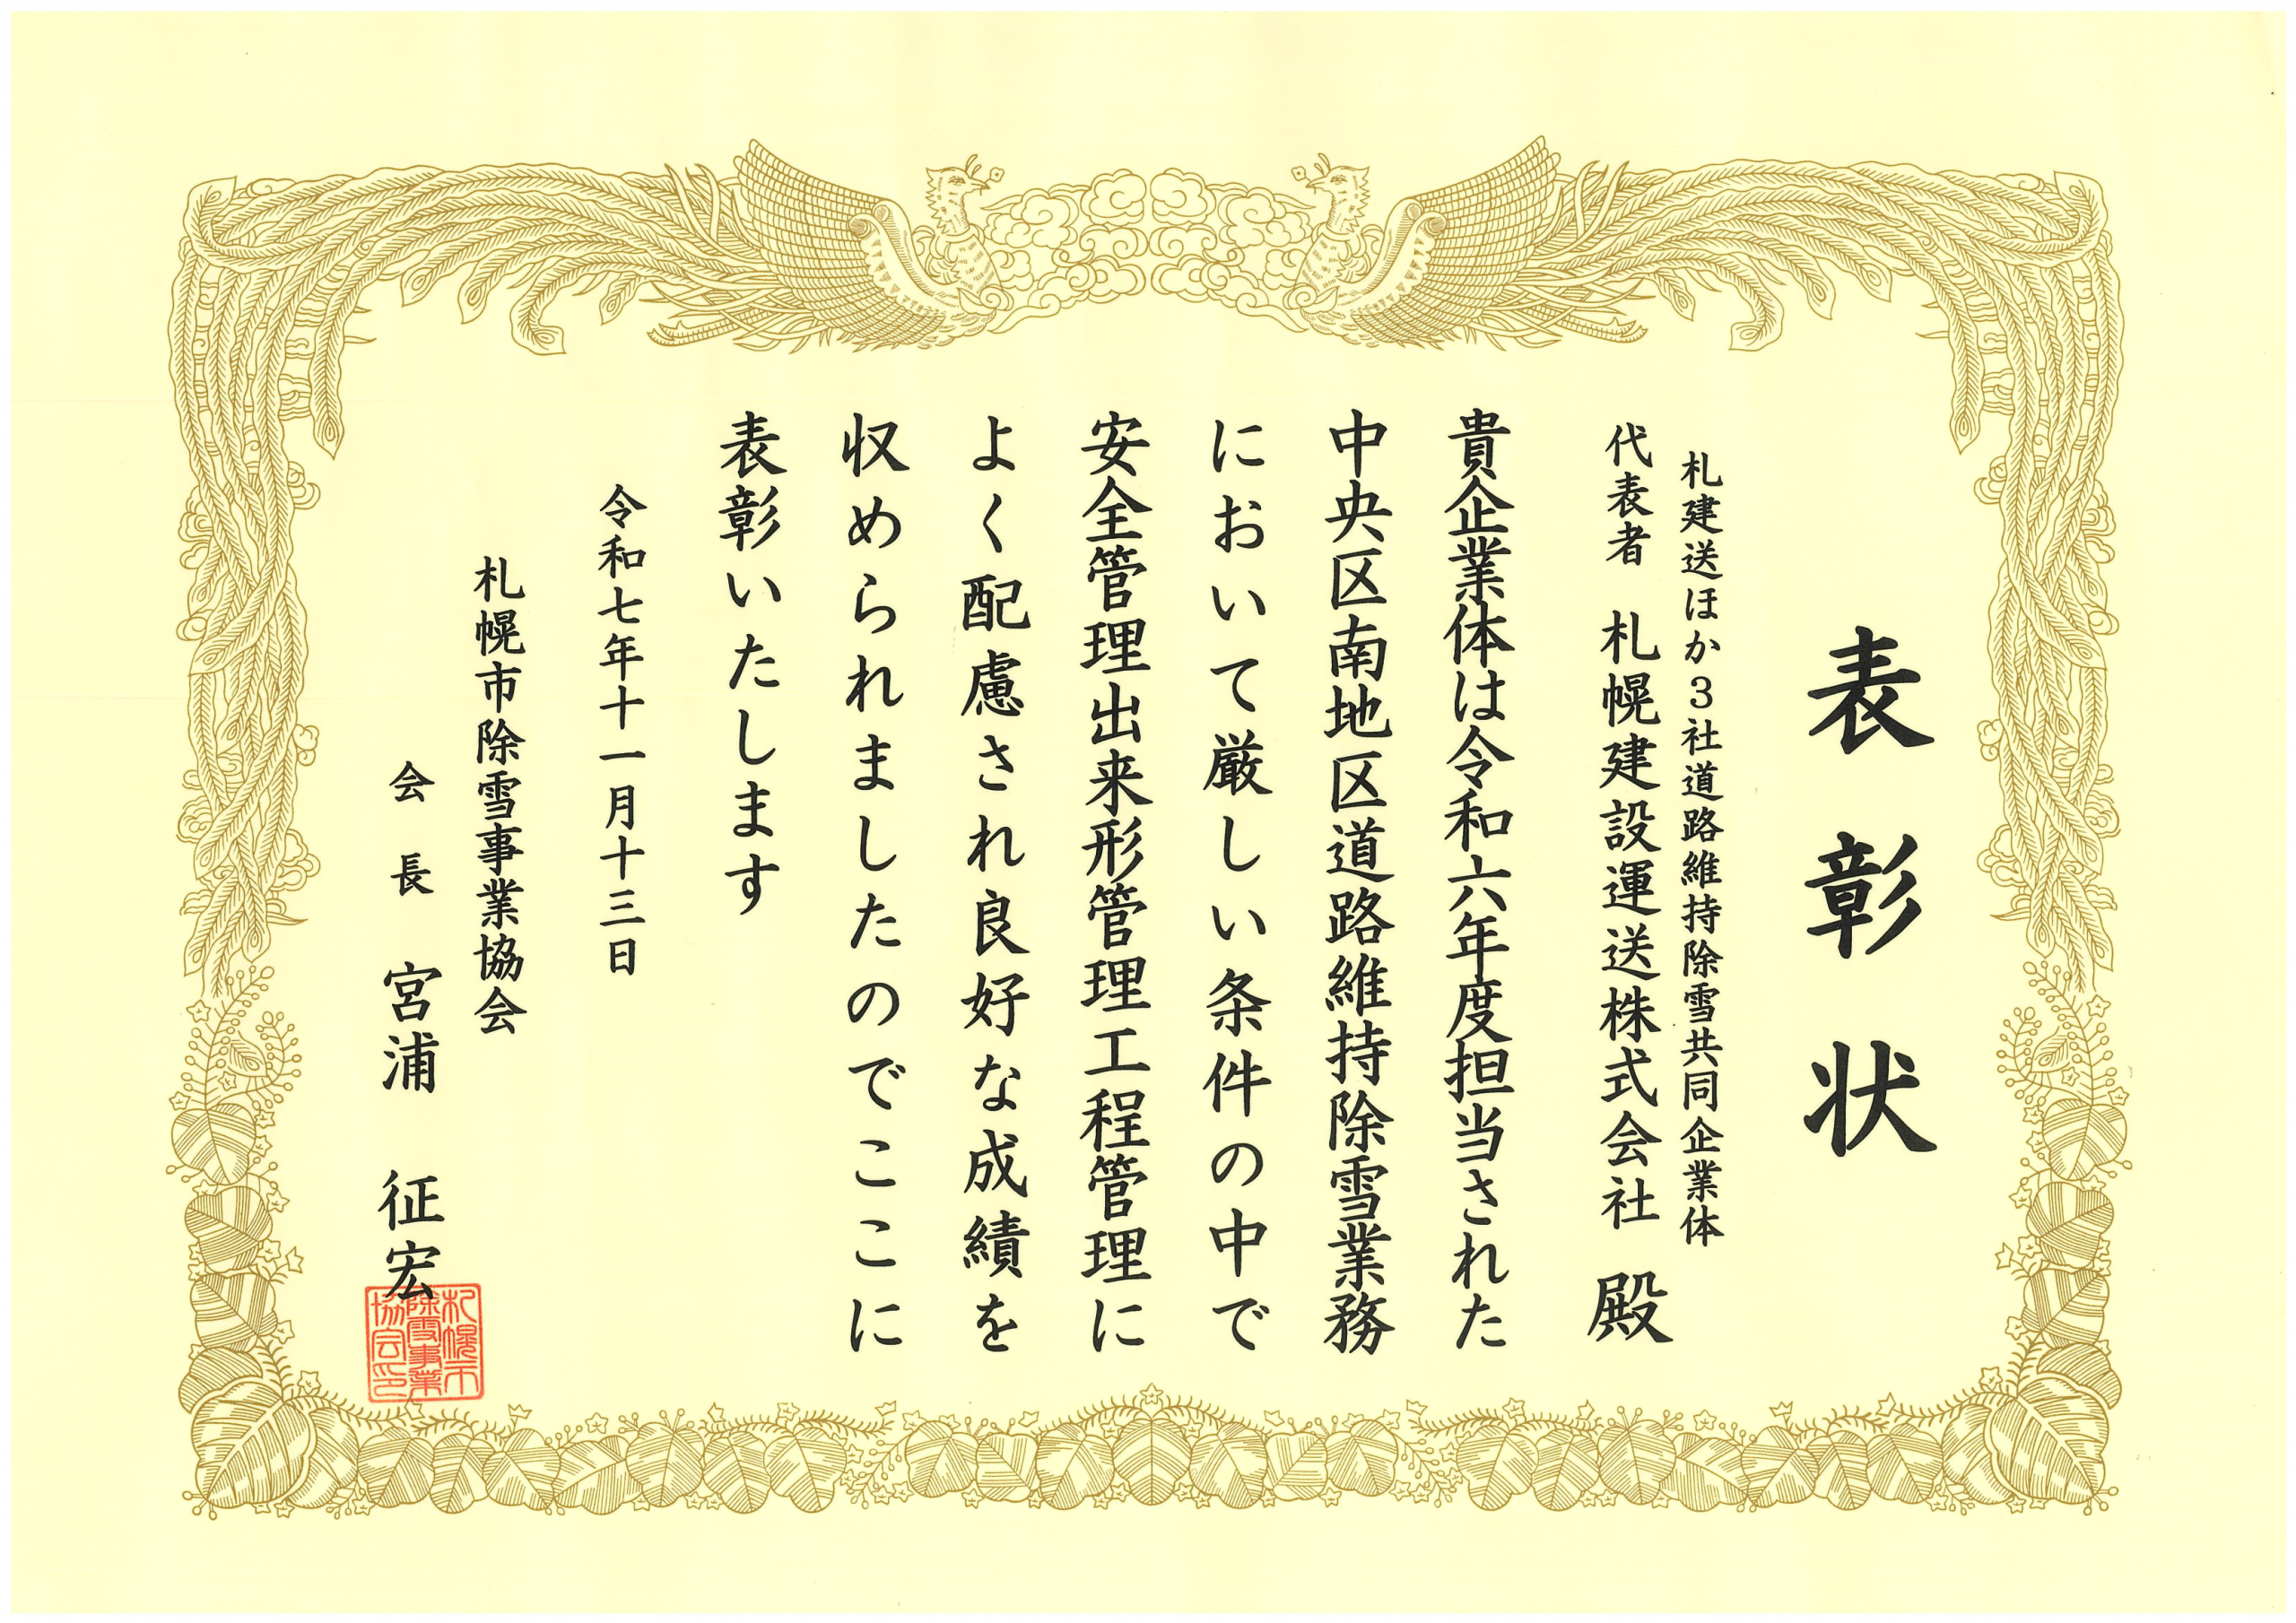 表彰状
札建送ほか３社道路維持除雪共同企業体
代表者 札幌建設運送株式会社 殿
貴企業体は令和六年度担当された
中央区南地区道路維持除雪業務
において厳しい条件の中で
安全管理出来形管理工程管理に
よく配慮され良好な成績を
収められましたのでここに
表彰いたします
令和七年十一月十三日
札幌市除雪事業協会
会長 宮浦 征宏
札幌市
除雪事業
協会印